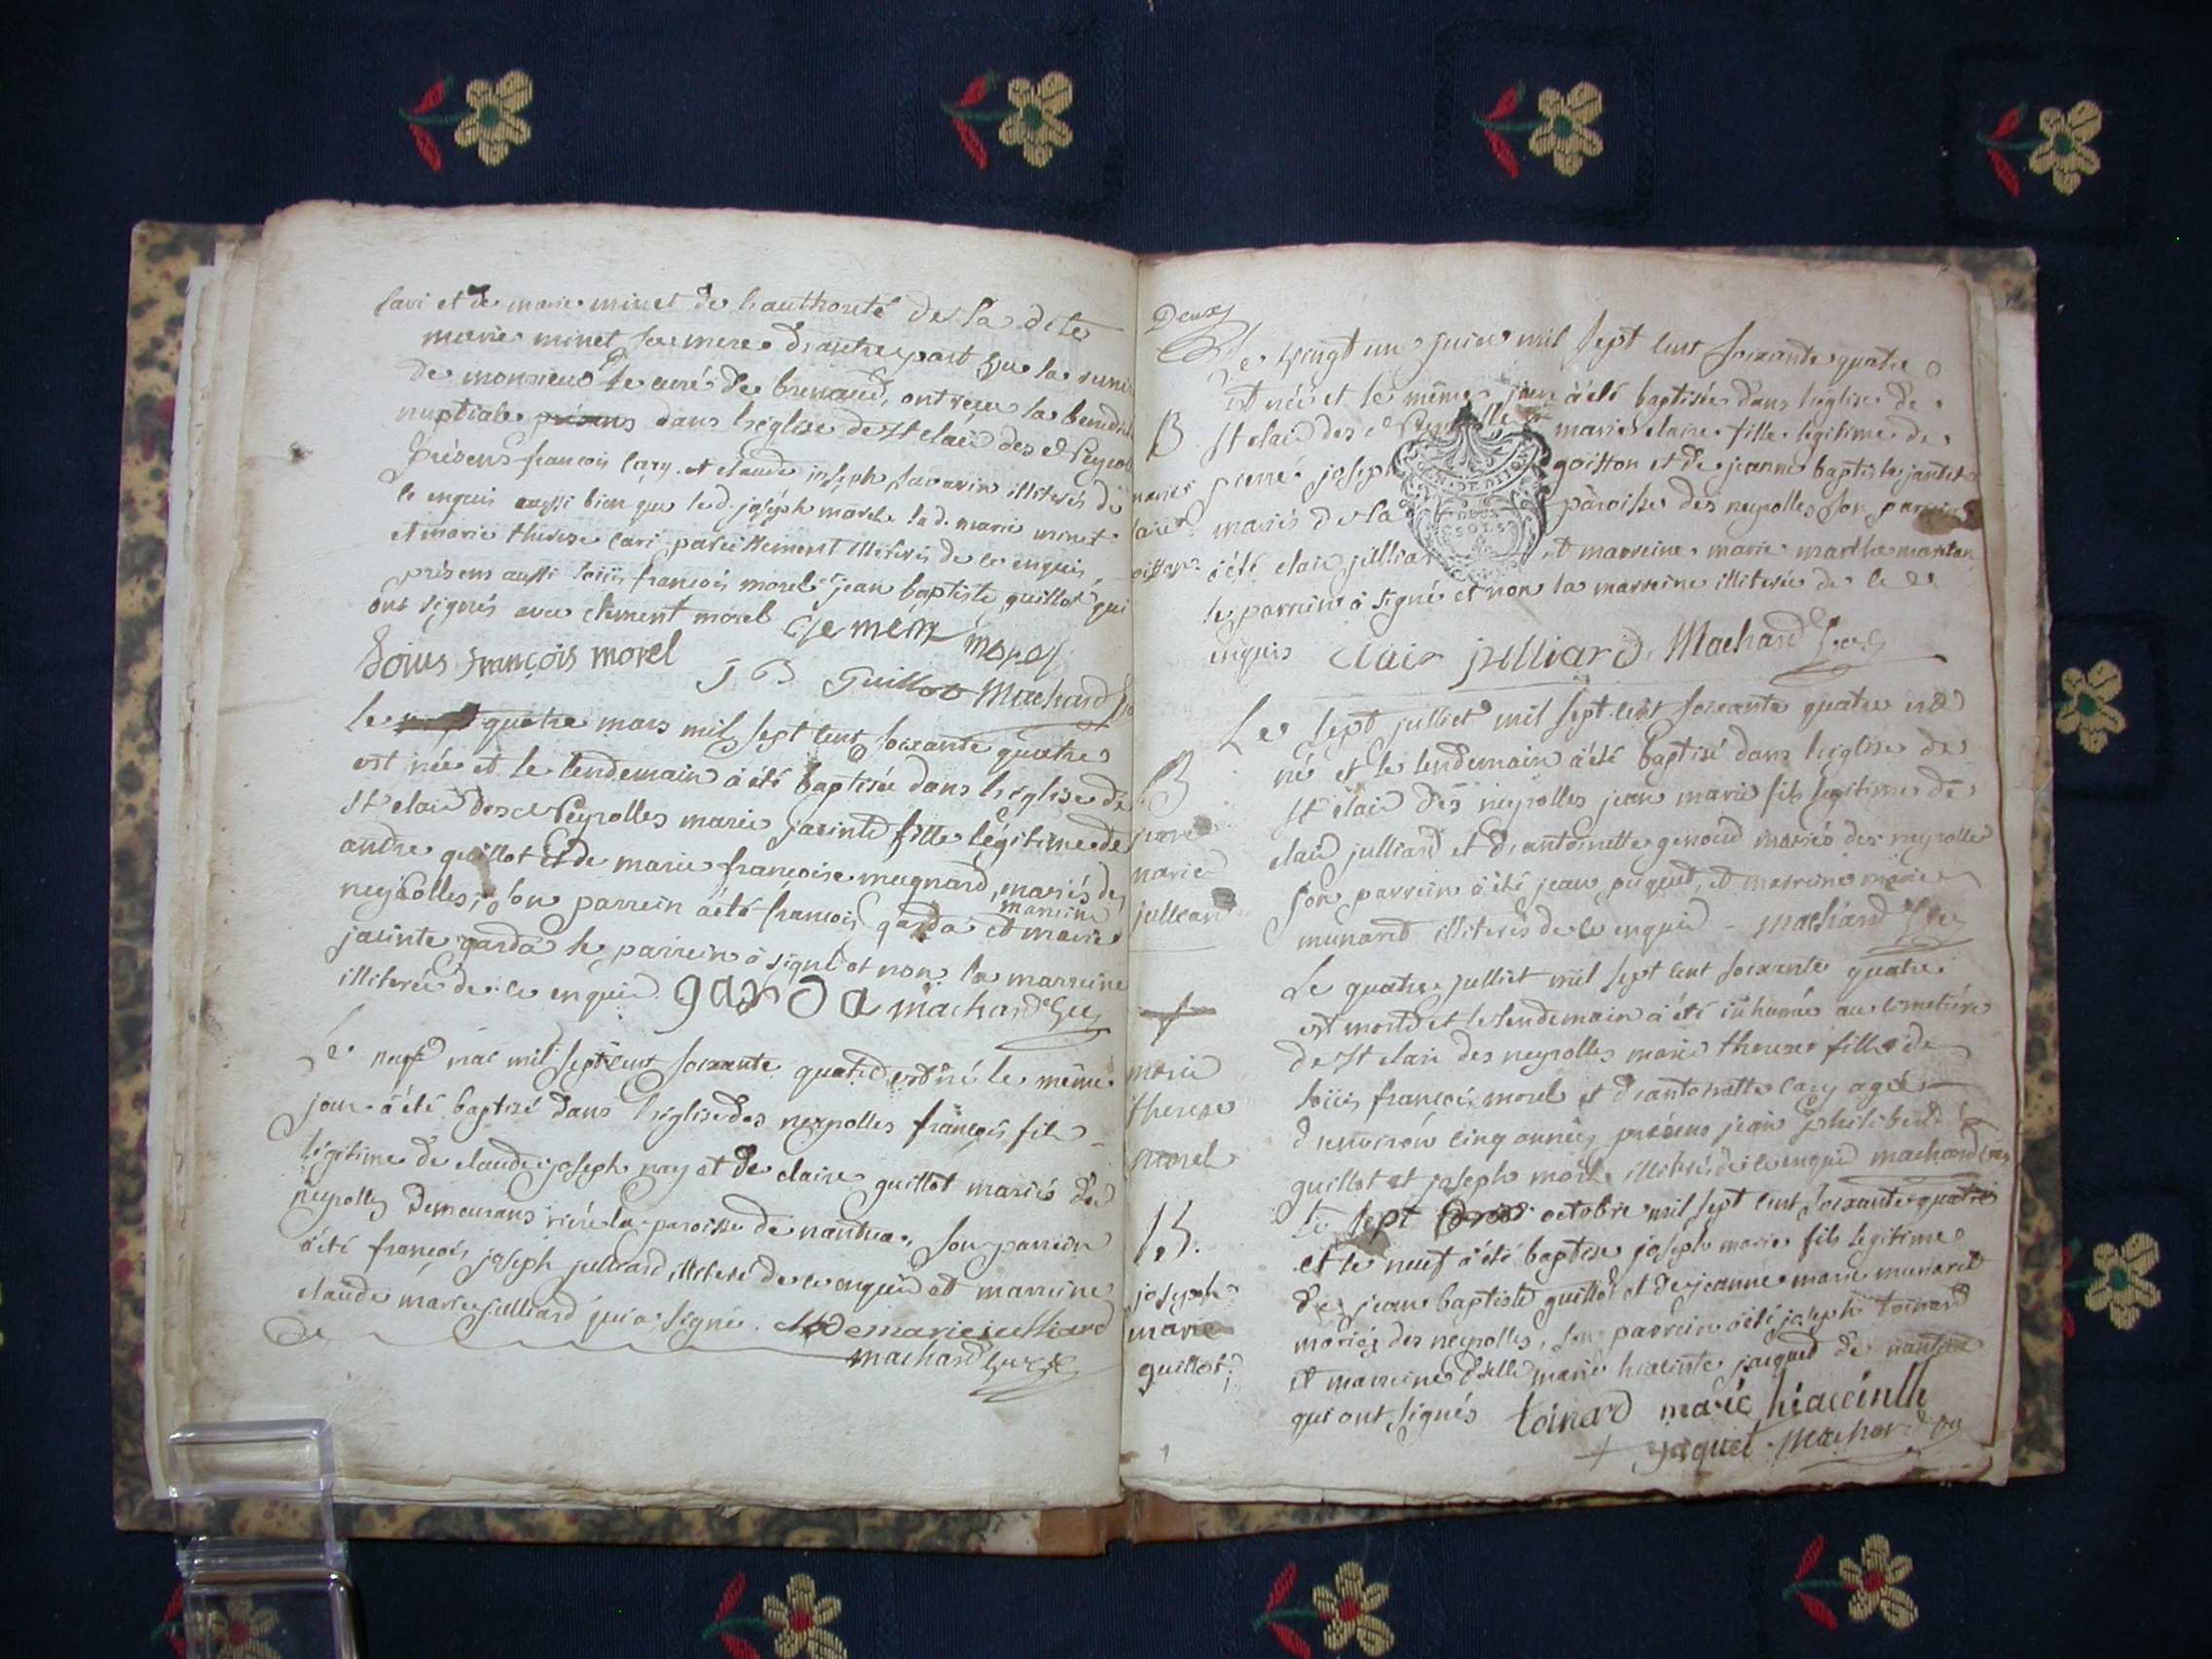 Cari et de marie minet de l'authorité de la dite
marie minet sa mere d'autre part sur la
de monsieur le curé de brenaud, ont reçu la
nuptiale dans l'eglise de St clair des Neyroll
présens françois Cary et claude joseph savarin illiterés de
ce enquis aussi bien que led. joseph morel lad. marie minet
et marie therese Cari pareillement illiterés de ce enquis,
présens aussi loüis françois morel et jean baptiste guillot qui
ont signés avec clement morel Clement morel
Loius François morel J B Guillot Machard
le quatre mars mil sept cent soixante quatre
est née et le lendemain a été baptisée dans l'eglise de
St clair des Neyrolles marie jacinte fille légitime de
andre guillot et de marie françoise mugnard, mariés des
neyrolles, son parrein a été françois garda et marreine marie
jacinte garda le parrein a signé et non la marreine
illiterée de ce enquis. garda machard
Le neuf mai mil sept cent soixante quatre est né le même
jour a été baptisé dans l'eglise des neyrolles françois fils
légitime de claude joseph nay et de claire guillot mariés des
neyrolles demeurans riere la paroisse de nantua, son parrein
a été françois joseph julliard, illiteré de ce enquis et marreine
claude marie julliard qui a signée. claudemariejulliard
machard
Deux
Le vingt un juin mil sept cent soixante quatre
est née et le même jour a été baptisée dans l'eglise de
B St clair des Neyrolles marie claire fille légitime de
marie pierre joseph goiffon et de jeanne baptiste jantet
claire mariés de la paroisse des neyrolles son parrein
goiffon a été clair julliard et marreine marie marthe
le parrein a signé et non la marreine illiterée de ce
enquis Clair julliard Machard
Le sept julliet mil sept cent soixante quatre est
B né et le lendemain a été baptisé dans l'eglise de
jean St clair des neyrolles jean marie fils legitime de
marie clair julliard et d'antoinette genoud mariés des neyrolles
julliard son parrein a été jean puquet, et marreine marie
munaret illiterés de ce enquis machard
Le quatre julliet mil sept cent soixante quatre
est morte et le lendemain a été inhumée au cimetiere
marie de St clair des neyrolles marie therese fille de
therese loüis françois morel et d'antoinette Cary agée
morel d'environ cinq années présens jean philibert
guillot et joseph morel illiterés de ce enquis machard
Le sept octobre mil sept cent soixante quatre
B. et le neuf a été baptisé joseph marie fils legitime
joseph de jean baptiste guillot et de jeanne marie munaret
marie mariés des neyrolles, son parrein a été joseph toinard
guillot et marreine dselle marie hiacinte jacquet de nantua
qui ont signés toinard marie hiaccinth
jaquet machard